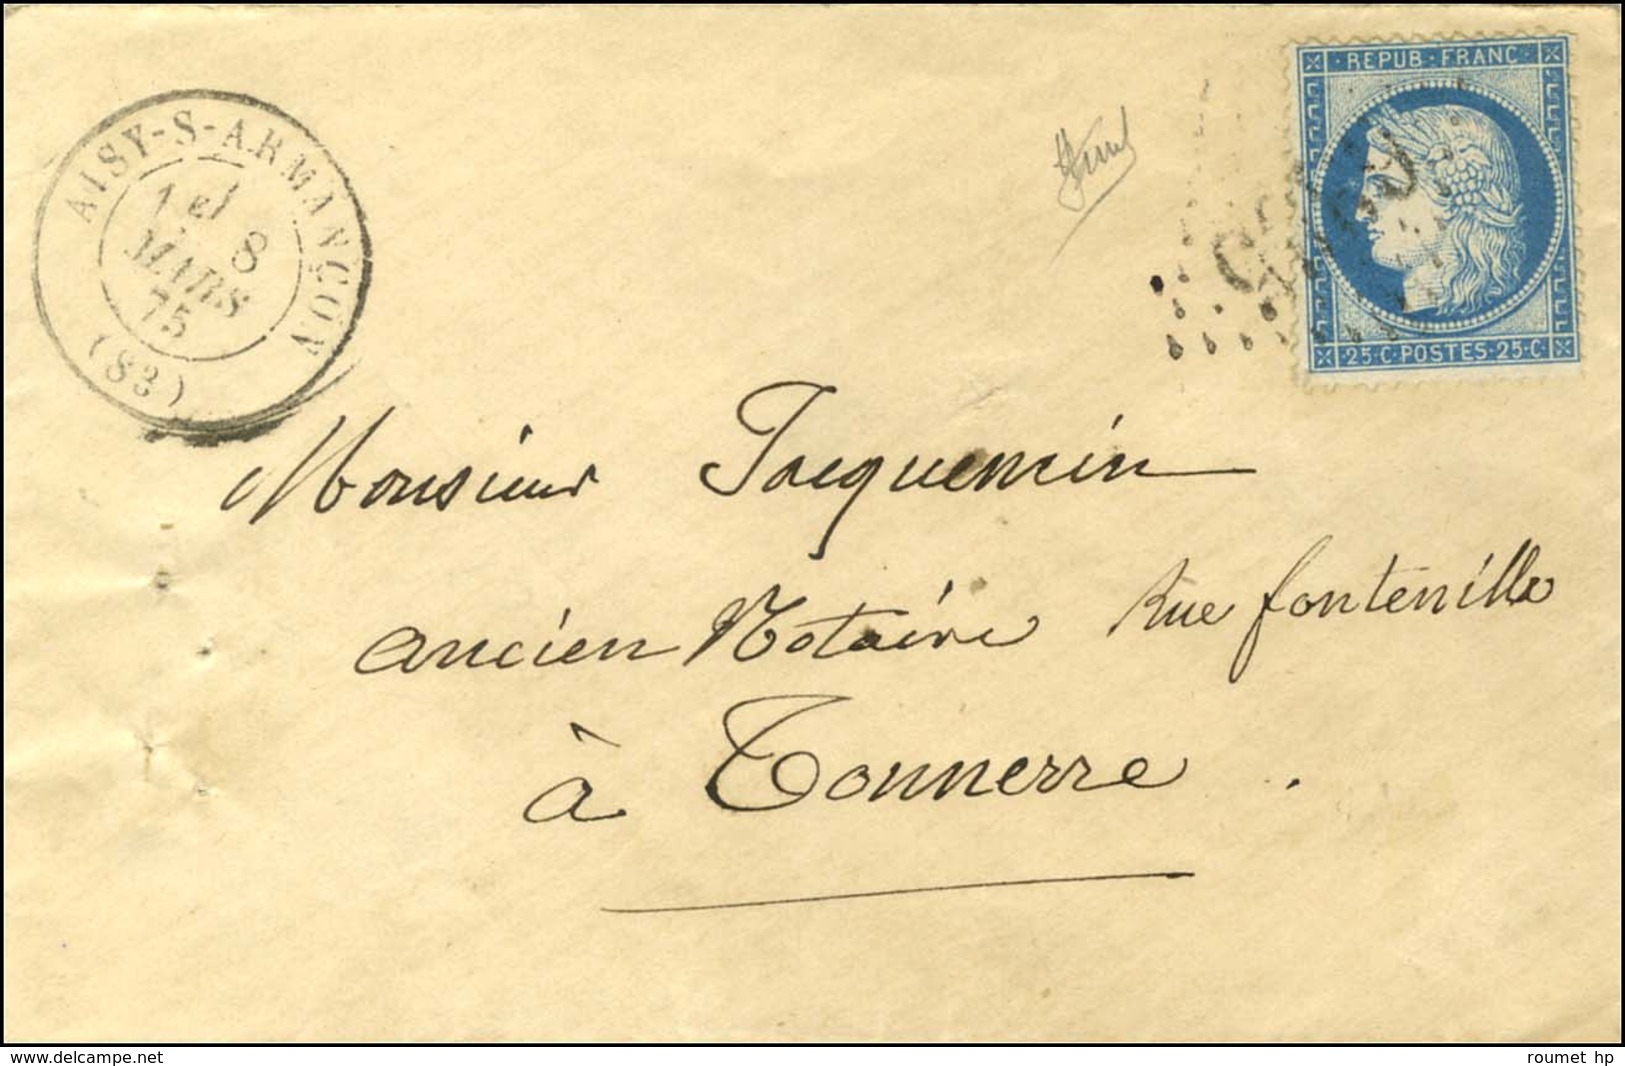 AISY-S-ARMANÇON
1 el
8
MARS
75
(83)
REPUB·FRANC
25·C·POSTES·25·C
Monsieur Jacquemin
ancien Notaire Rue fontenille
à Tonnerre.
www.delcampe.net
roumet hp